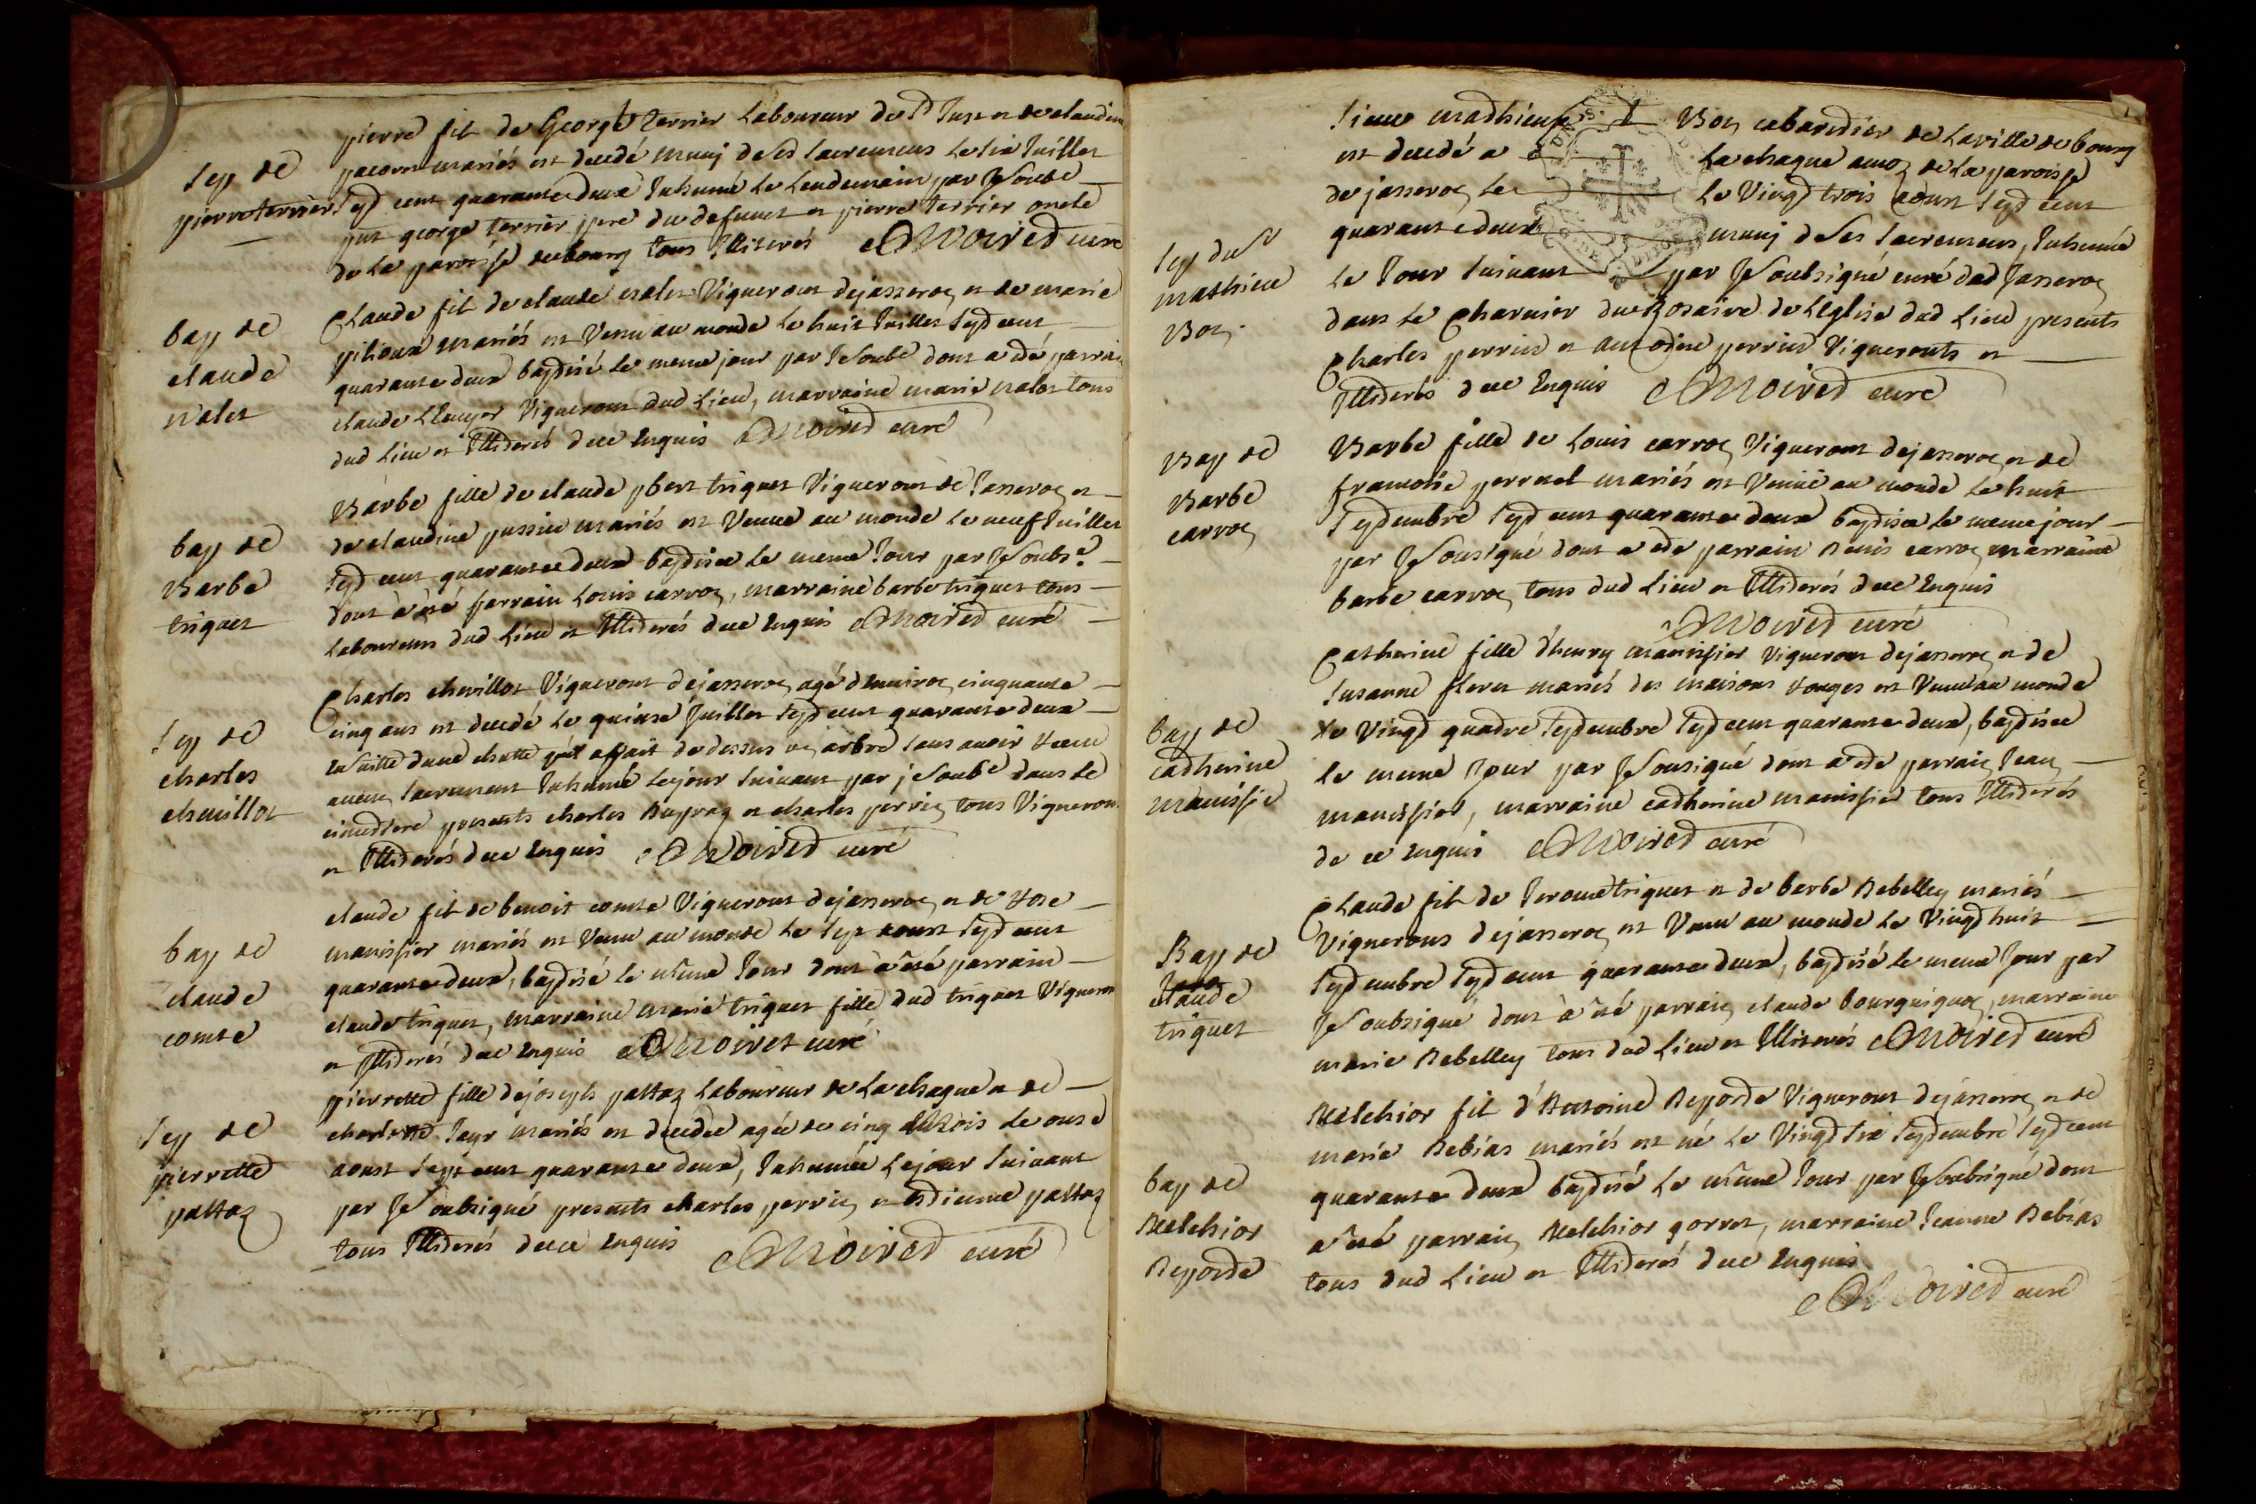 Sep de
pierre terrier
pierre fils de George terrier Laboureur de St Just et de claudine
pacoux mariés est decedé muny de ses sacremens Le six Juillet
sept cent quarante deux Inhumé Le Lendemain par Je soubs
pnt george terrier pere du defunct et pierre terrier oncle
de La paroisse de bourg tous Illiterés Moiret curé
bap de
claude
nalet
Claude fils de claude nalet Vigneront de jasseron et de marie
mariés est Venu au monde Le huit Juillet sept cent
quarante deux baptisé Le meme jour par Je soubs dont a été parrain
claude Vigneront dud Lieu, marraine marie nalet tous
dud Lieu et Illiterés de ce Enquis Moiret curé
bap de
Barbe
triquet
Barbe fille de claude ybert triquet Vigneront de Jasseron et
de claudine mariés est Venue au monde Le neuf Juillet
sept cent quarante deux baptisée Le meme Jour par Je soubs
dont a été parrain Louis carron, marraine barbe triquet tous
Laboureurs dud Lieu et Illiterés de ce Enquis Moiret curé
Sep de
charles
chevillot
Charles chevillot Vigneront de jasseron agé d'Environ cinquante
cinq ans est decedé Le quinze Juillet sept cent quarante deux
Ensuitte d'une chutte qu'il a fait de dessus un arbre sans avoir receu
aucun sacrement Inhumé Le jour suivant par je soubs dans Le
cimetiere presents charles Dupraz et charles perrin tous Vignerons
et Illiterés de ce Enquis Moiret curé
bap de
claude
comte
claude fils de benoit comte Vigneront de jasseron et de rose
manissier mariés est Venu au monde Le sept aoust sept cent
quarante deux, baptisé Le même Jour dont a été parrain
claude triquet, marraine marie triquet fille dud triquet Vigneron
et Illiterés de ce Enquis Moiret curé
Sep de
pierrette
pattaz
pierrette fille de joseph pattaz Laboureur de La chagne et de
charlotte mariés est decedée agée de cinq Mois Le onze
aoust sept cent quarante deux, Inhumée Le jour suivant
par Je soubsigné presents charles perrin et Estienne pattaz
tous Illiterés de ce Enquis Moiret curé
Sep du Sr
mathieu
Bon
Sieur mathieu Bon cabaretier de La ville de bourg
est decedé a La chagne de La paroisse
de jasseron Le Le Vingt trois aoust sept cent
quarante deux muny de ses sacremens, Inhumé
Le Jour suivant par Je soubsigné curé dud Jasseron
dans Le Charnier du Rosaire de L'Eglise dud Lieu presents
Charles perrin et antoine perrin Vignerons et
Illiterés de ce Enquis Moiret curé
Bap de
Barbe
carron
Barbe fille de Louis carron Vigneront de jasseron et de
francoise perruel mariés est Venue au monde Le huit
septembre sept cent quarante deux baptisée Le meme jour
par Je sousigné dont a été parrain Denis carron marraine
barbe carron tous dud Lieu et Illiterés de ce Enquis
Moiret curé
bap de
catherine
manissie
Catherine fille d'henry manissier Vigneron de jasseron et de
Susanne floret mariés des maisons rouges est Venue au monde
Le Vingt quatre septembre sept cent quarante deux, baptisée
Le meme Jour par Je sousigné dont a été parrain Jean
manissier, marraine catherine manissier tous Illiterés
de ce Enquis Moiret curé
Bap de
claude
triquet
Claude fils de Jerome triquet et de barbe Rebelley mariés
Vignerons de jasseron est Venu au monde Le Vingt huit
septembre sept cent quarante deux, baptisé Le meme Jour par
Je soubsigné dont a été parrain claude bourguignon, marraine
marie Rebelley tous dud Lieu et Illiterés Moiret curé
bap de
Melchior
Reporte
Melchior fils d'Antoine Reporte Vigneront de jasseron et de
marie Debias mariés est né Le Vingt six septembre sept cent
quarante deux baptisé Le même Jour par Je soubsigné dont
a été parrain Melchior gorret, marraine Jeanne Debias
tous dud Lieu et Illiterés de ce Enquis
Moiret curé